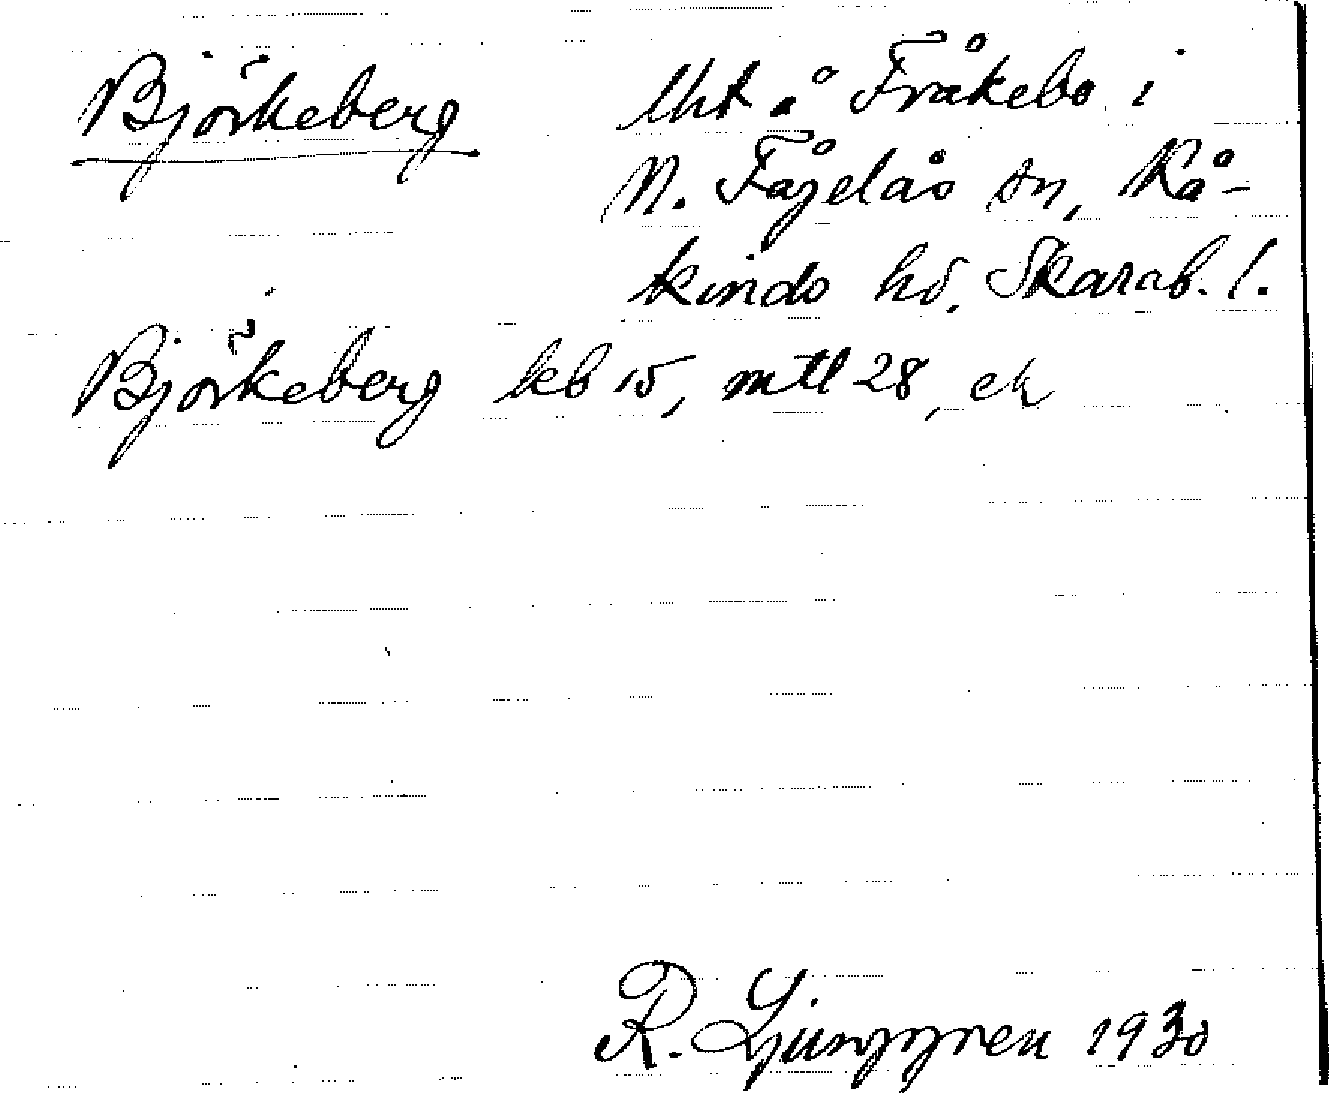 Björkeberg lht å Fråkebo i
N. Fågelås sn, Kå-
kinds hd, Skarab. l.
Björkeberg kb 15, mtl 28, ek
R. Ljunggren 1930